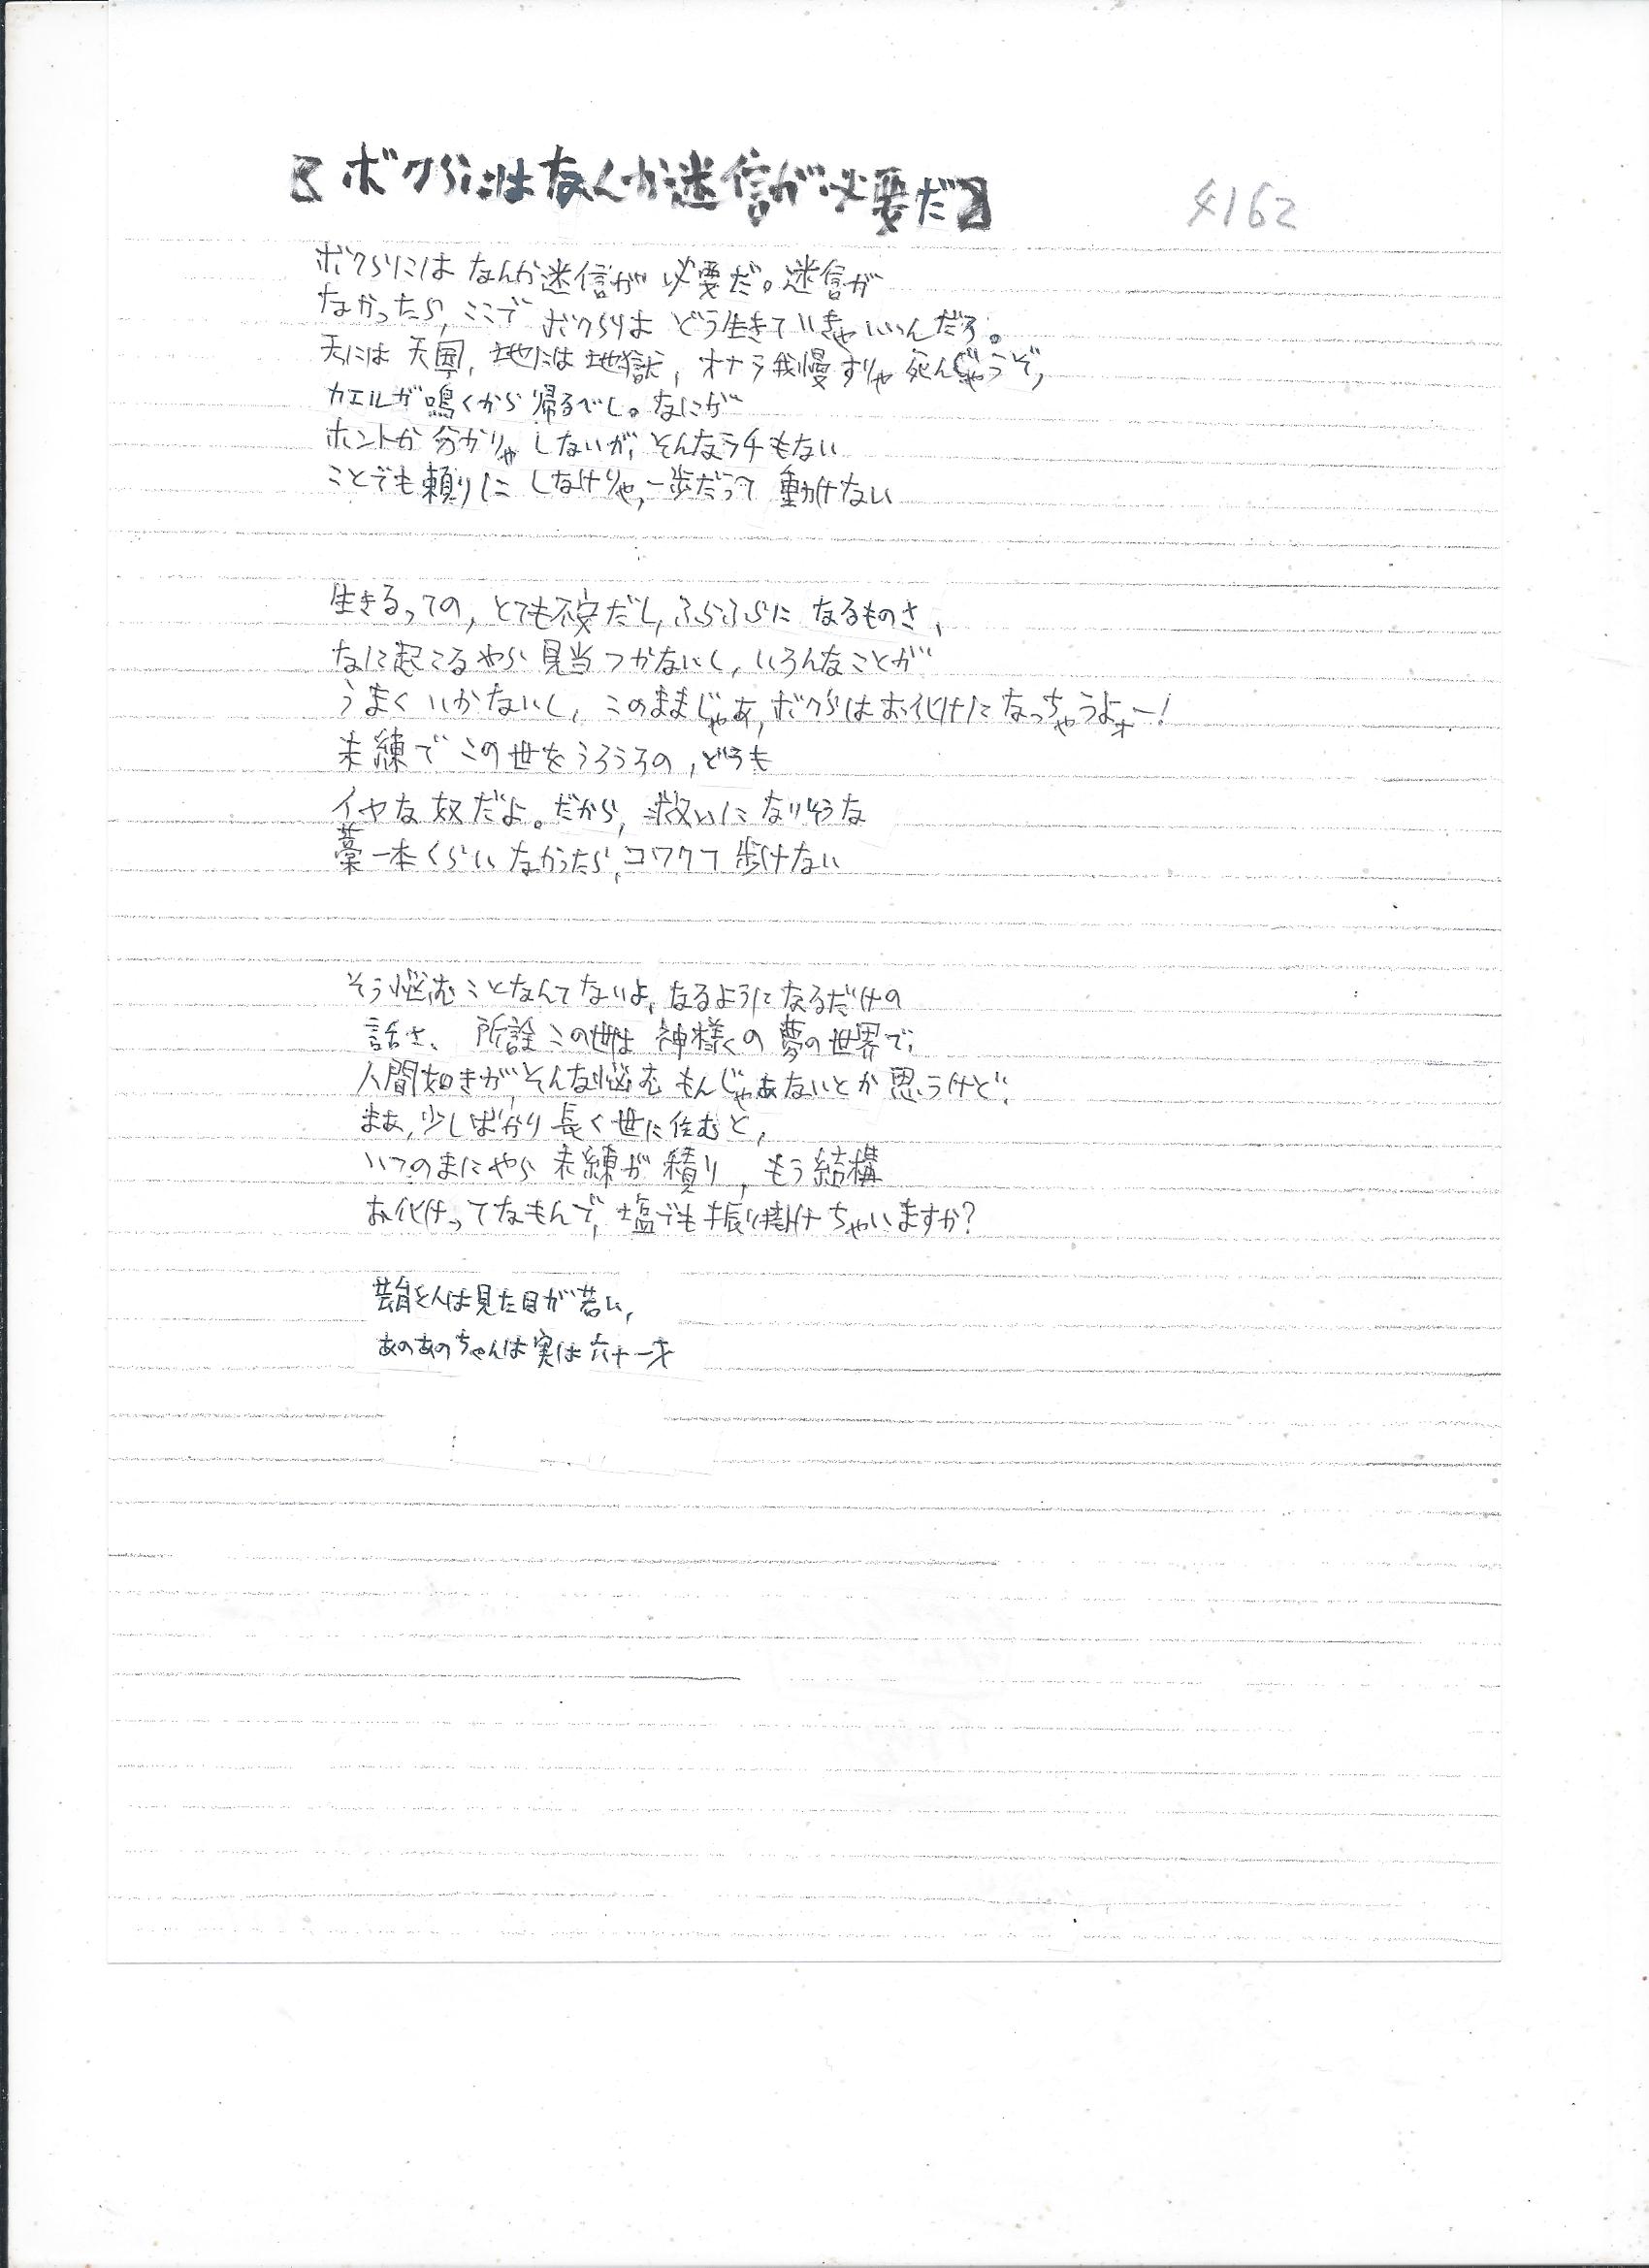 【ボクらにはなんか迷信が必要だ】
4162
ボクらにはなんか迷信が必要だ。迷信が
なかったら、ここでボクらはどう生きていきゃいいんだろ。
天には天国、地には地獄、オナラ我慢すりゃ死んじゃうぞ、
カエルが鳴くから帰るべし。なにが
ホントか分かりゃしないが、そんなラチもない
ことでも頼りにしなけりゃ、一歩だって動けない
生きるっての、とても不安だし、ふらふらになるものさ、
なに起こるやら見当つかないし、いろんなことが
うまくいかないし、このままじゃあ、ボクらはお化けになっちゃうよォー!
未練でこの世をうろうろの、どうも
イヤな奴だよ。だから、救いになりそうな
藁一本くらいなかったら、コワクて歩けない
そう悩むことなんてないよ、なるようになるだけの
話さ、所詮この世は神様の夢の世界で、
人間如きが、そんな悩むもんじゃあないとか思うけど、
まあ、少しばかり長く世に住むと、
いつのまにやら未練が積り、もう結構
お化けってなもんで、塩でも振り掛けちゃいますか?
芸能人は見た目が若い、
あのあのちゃんは実は六十一才